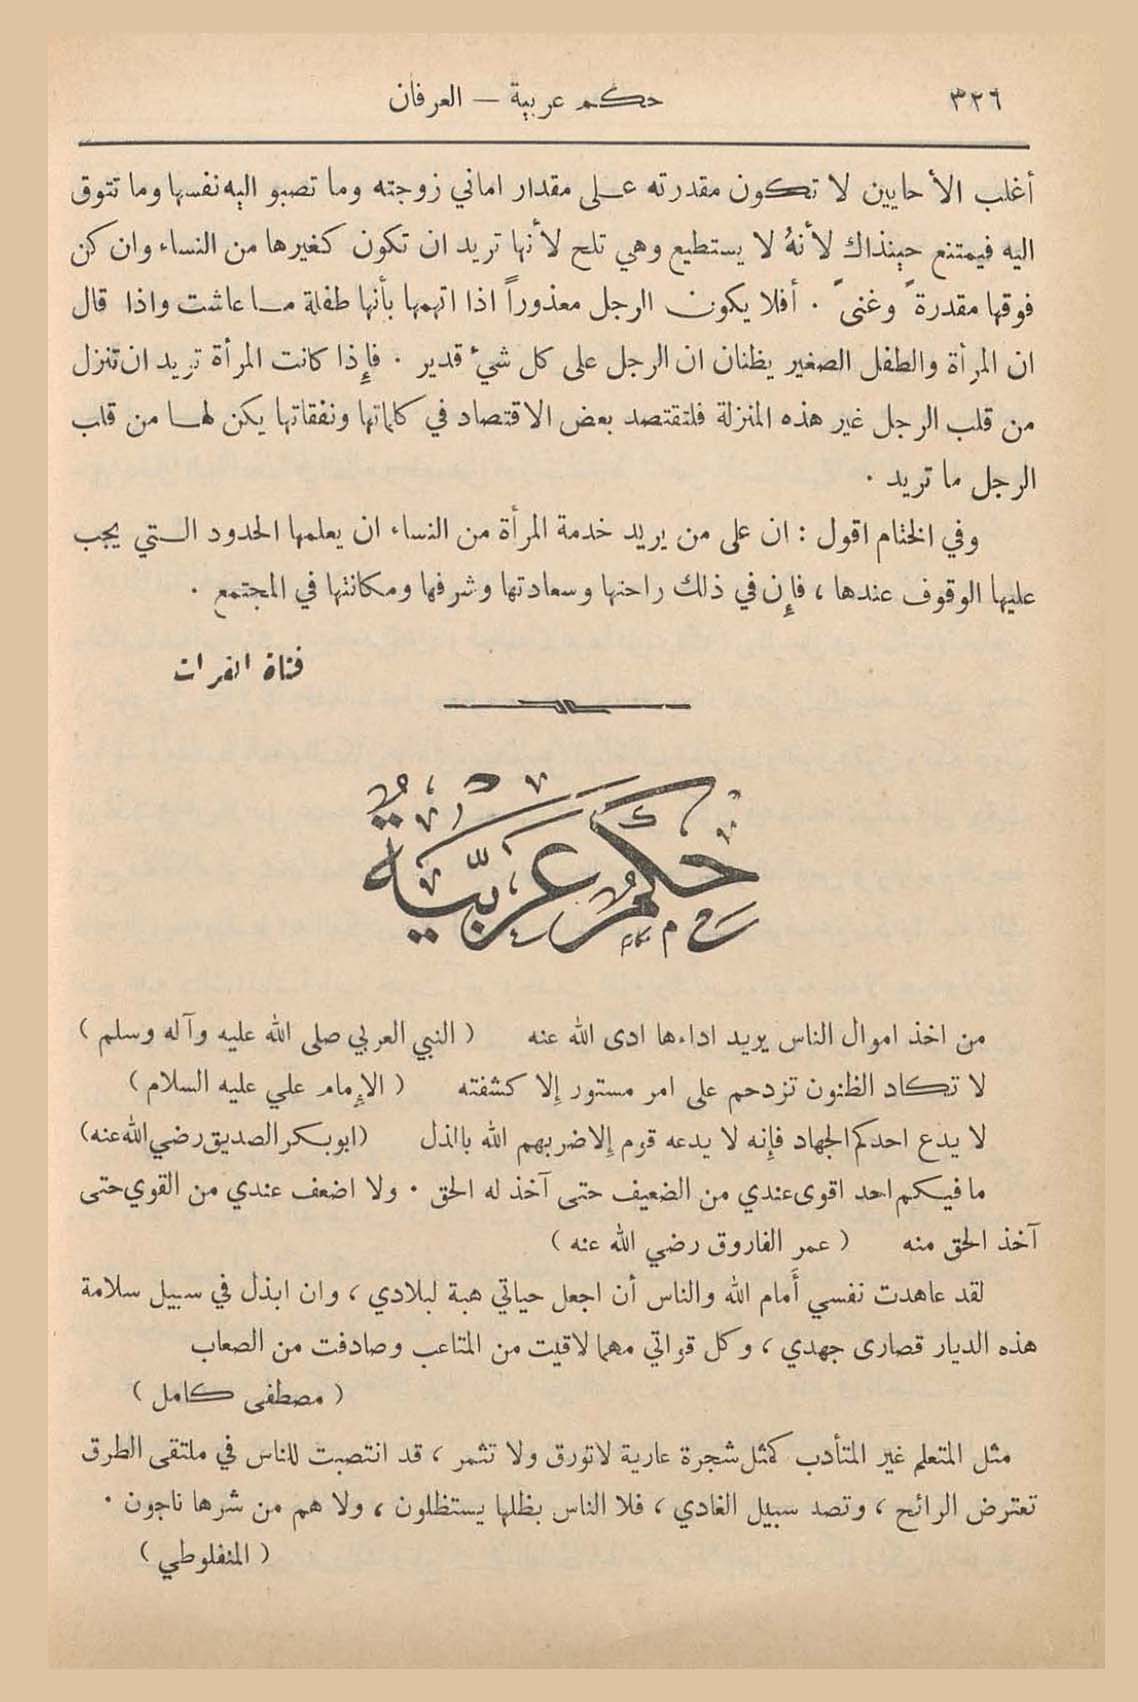 ٣٢٦
حكم عربية — العرفان
أغلب الأحايين لا تكون مقدرته على مقدار اماني زوجته وما تصبو اليه نفسها وما تتوق
اليه فيمتنع حينذاك لأنهُ لا يستطيع وهي تلح لأنها تريد ان تكون كغيرها من النساء وان كن
فوقها مقدرةً وغنىً . أفلا يكون الرجل معذوراً اذا اتهمها بأنها طفلة ما عاشت واذا قال
ان المرأة والطفل الصغير يظنان ان الرجل على كل شيء قدير . فإذا كانت المرأة تريد ان تنزل
من قلب الرجل غير هذه المنزلة فلتقتصد بعض الاقتصاد في كلماتها ونفقاتها يكن لها من قلب
الرجل ما تريد .
وفي الختام اقول : ان على من يريد خدمة المرأة من النساء ان يعلمها الحدود التي يجب
عليها الوقوف عندها ، فإن في ذلك راحتها وسعادتها وشرفها ومكانتها في المجتمع .
فتاة الفرات
حِكَمٌ عَرَبِيَّةٌ
من اخذ اموال الناس يريد اداءها ادى الله عنه ( النبي العربي صلى الله عليه وآله وسلم )
لا تكاد الظنون تزدحم على امر مستور إلا كشفته ( الإمام علي عليه السلام )
لا يدع احدكم الجهاد فإنه لا يدعه قوم إلا ضربهم الله بالذل (ابو بكر الصديق رضي الله عنه)
ما فيكم احد اقوى عندي من الضعيف حتى آخذ له الحق . ولا اضعف عندي من القوي حتى
آخذ الحق منه ( عمر الفاروق رضي الله عنه )
لقد عاهدت نفسي أَمام الله والناس أن اجعل حياتي هبة لبلادي ، وان ابذل في سبيل سلامة
هذه الديار قصارى جهدي ، وكل قواتي مهما لاقيت من المتاعب وصادفت من الصعاب
( مصطفى كامل )
مثل المتعلم غير المتأدب كمثل شجرة عارية لا تورق ولا تثمر ، قد انتصبت للناس في ملتقى الطرق
تعترض الرائح ، وتصد سبيل الغادي ، فلا الناس بظلها يستظلون ، ولا هم من شرها ناجون .
( المنفلوطي )